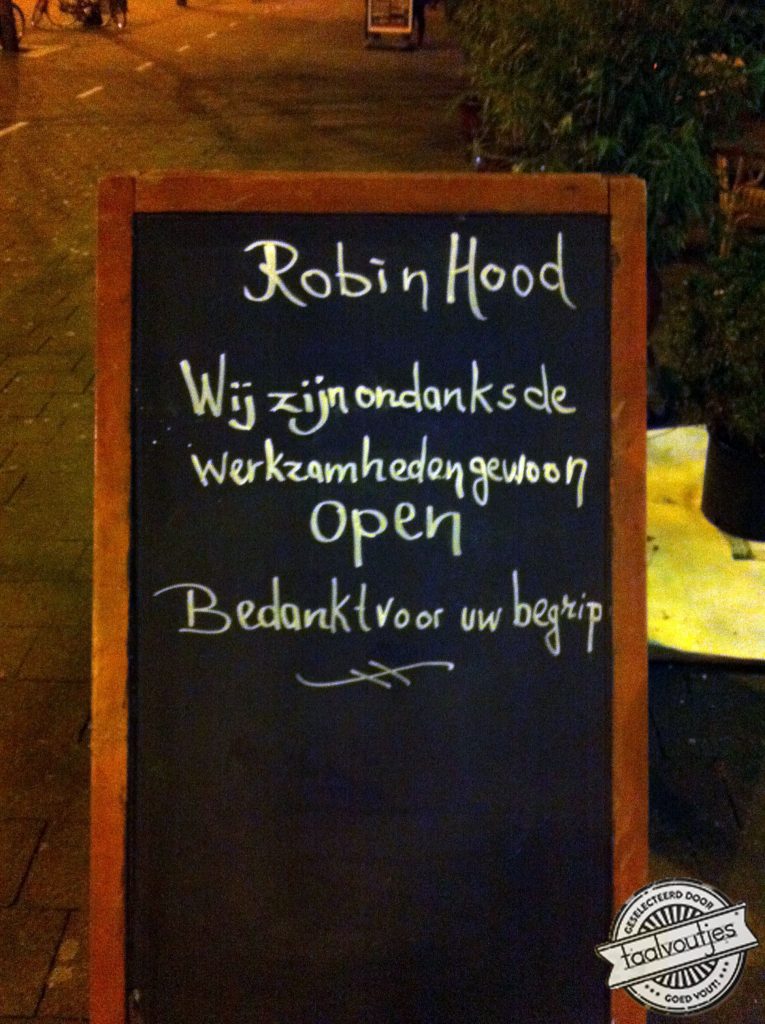 Robin Hood
Wij zijn ondanks de
werkzamheden gewoon
open
Bedankt voor uw begrip
GESELECTEERD DOOR
taalvoutjes
GOED VOUT!